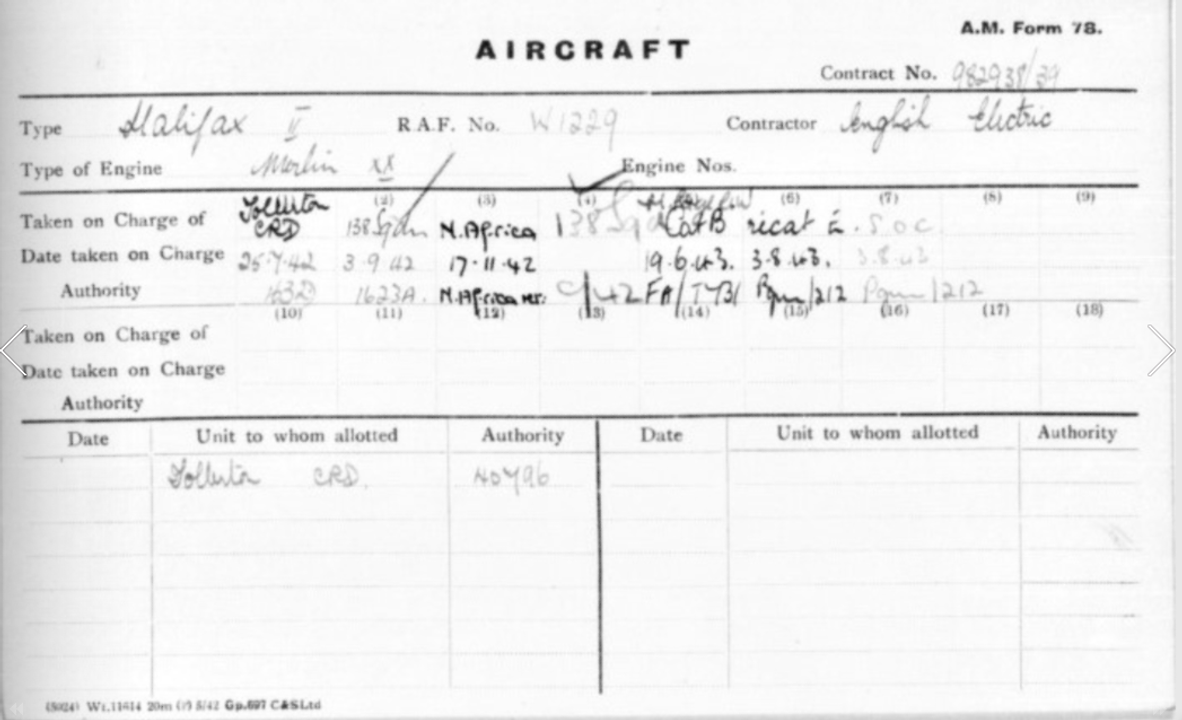 A.M. Form 78.
AIRCRAFT
Contract No. 982938/39
Type Halifax II R.A.F. No. W1229 Contractor English Electric
Type of Engine Merlin XX Engine Nos.
(2) (3) (4) (6) (7) (8) (9)
Taken on Charge of Tollerton CRD 138 Sqdn N.Africa 138 Sqd Cat B ricat E. S O C
Date taken on Charge 25.7.42 3.9.42 17.11.42 19.6.43. 3.8.43. 3.8.43
Authority 1623A. N.Africa FA/ /212 /212
(10) (11) (12) (13) (14) (15) (16) (17) (18)
Taken on Charge of
Date taken on Charge
Authority
Date Unit to whom allotted Authority Date Unit to whom allotted Authority
Tollerton CRD. 40796
(5024) Wt.11614 20m 5/42 Gp.697 C&S Ltd